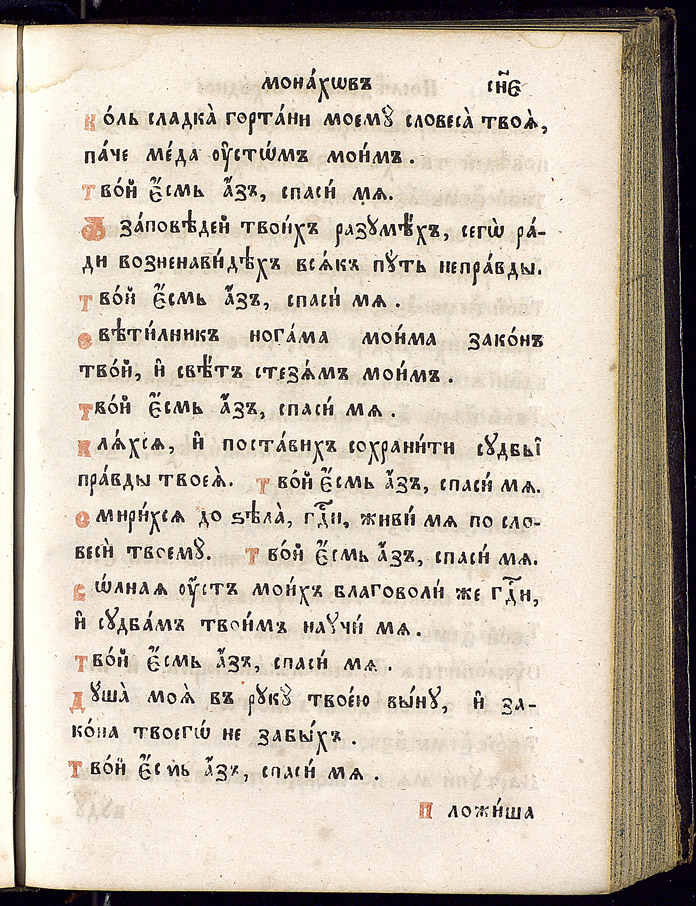 мона́хѡвъ сн҃є
Ко́ль сладка̀ горта́ни моемꙋ̀ словеса̀ твоѧ̀,
па́че ме́да ᲂу҆стѡ́мъ мои́мъ.
Тво́й є҆́смь а҆́зъ, спаси́ мѧ.
Ѿ за́повѣдей твои́хъ разꙋмѣ́хъ, сегѡ̀ ра́-
ди возненави́дѣхъ всѧ́къ пꙋ́ть непра́вды.
Тво́й є҆́смь а҆́зъ, спаси́ мѧ.
Свѣти́лникъ нога́ма мои́ма зако́нъ
тво́й, и҆ свѣ́тъ стезѧ́мъ мои́мъ.
Тво́й є҆́смь а҆́зъ, спаси́ мѧ.
Клѧ́хсѧ, и҆ поста́вихъ сохрани́ти сꙋдбы̀
пра́вды твоеѧ̀. Тво́й є҆́смь а҆́зъ, спаси́ мѧ.
Смири́хсѧ до ѕѣла̀, гд҇и, живи́ мѧ по сло-
весѝ твоемꙋ̀. Тво́й є҆́смь а҆́зъ, спаси́ мѧ.
Вѡ́лнаѧ ᲂу҆́стъ мои́хъ благоволи́ же гд҇и,
и҆ сꙋдба́мъ твои́мъ наꙋчи́ мѧ.
Тво́й є҆́смь а҆́зъ, спаси́ мѧ.
Дꙋша̀ моѧ̀ въ рꙋкꙋ̀ твое́ю вы́нꙋ, и҆ за-
ко́на твоегѡ̀ не забы́хъ.
Тво́й є҆́смь а҆́зъ, спаси́ мѧ.
Положи́ша